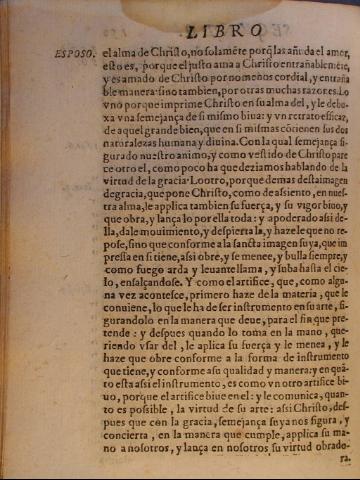 LIBRO
ESPOSO. el alma de Christo, no solamēte porq̃ las añuda el amor,
esto es, porque el justo ama a Christo entrañablemēte,
y es amado de Christo por no menos cordial, y entraña
ble manera: sino tambien, por otras muchas razones. Lo
vno porque imprime Christo en su alma del, y le debu-
xa vna semejança de si mismo biua: y vn retrato efficaz,
de aquel grande bien, que en si mismas cōtienen sus dos
naturalezas humana y diuina. Con la qual semejança fi-
gurado nuestro animo, y como vestido de Christo pare
ce otro el, como poco ha que deziamos hablando de la
virtud de la gracia. Lo otro, porque demas desta imagen
de gracia, que pone Christo, como de asiento, en nues-
tra alma, le applica tambien su fuerça, y su vigor biuo, y
que obra, y lança lo por ella toda: y apoderado assi de-
lla, dale mouimiento, y despierta la, y haze le que no re-
pose, sino que conforme a la sancta imagen suya, que im
pressa en si tiene, assi obre, y se menee, y bulla siempre, y
como fuego arda y leuante llama, y suba hasta el cie-
lo, ensalçandose. Y como el artifice, que, como algu-
na vez acontesce, primero haze de la materia, que le
conuiene, lo que le ha de ser instrumento en su arte, fi-
gurandolo en la manera que deue, para el fin que pre-
tende: y despues quando lo toma en la mano, que-
riendo vsar del, le aplica su fuerça y le menea, y le
haze que obre conforme a la forma de instrumento
que tiene, y conforme a su qualidad y manera: y en quā-
to esta assi el instrumento, es como vn otro artifice bi-
uo, porque el artifice biue en el: y le comunica, quan-
to es possible, la virtud de su arte: assi Christo, des-
pues que con la gracia, semejança suya nos figura, y
concierta, en la manera que cumple, applica su ma-
no a nosotros, y lança en nosotros su virtud obrado-
ra.